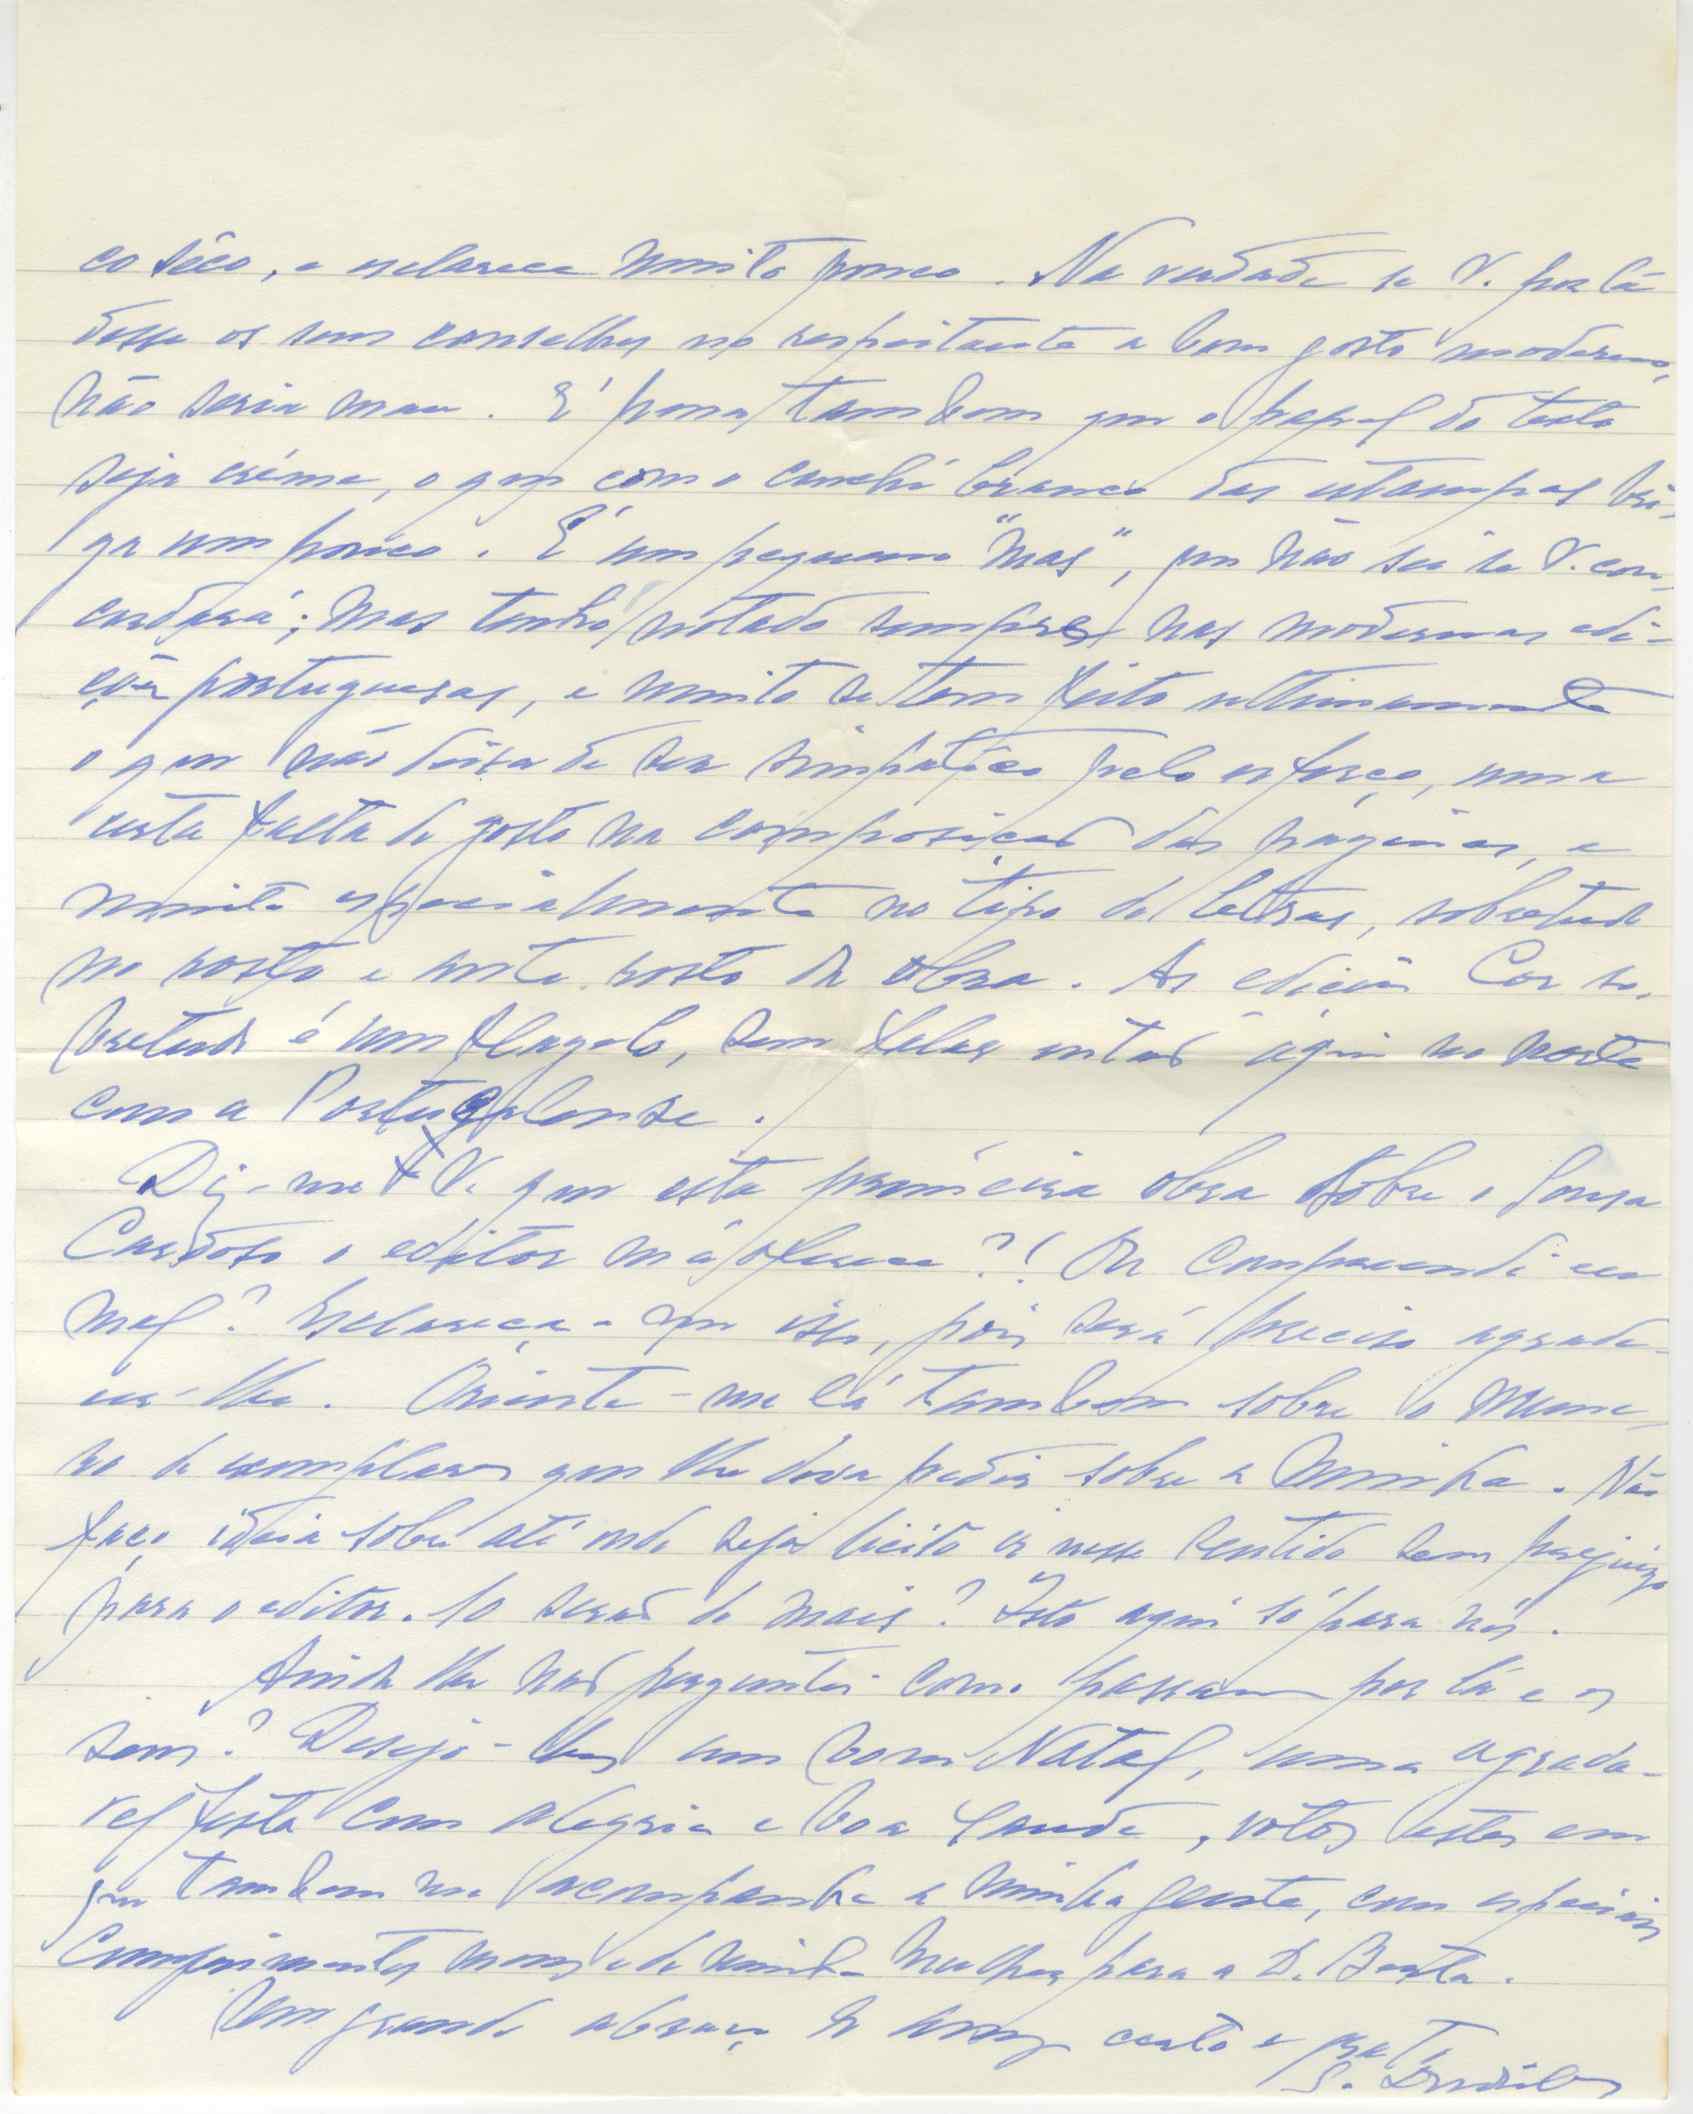 co sêco, e esclarece muito pouco. Na verdade se V. por lá
desse os seus conselhos no respeitante a bom gosto moderno,
não seria mau. É pena tambem que o papel do texto
seja créme, o que com o couché branco das estampas bri-
ga um pouco. É um pequeno "mas", que não sei se V. con-
cordará; mas tenho notado sempre nas modernas edi-
ções portuguesas, e muito se tem feito ultimamente
o que não deixa de ser simpático pelo esforço, uma
certa falta de gosto na composição das páginas, e
muito especialmente no tipo de letras, sobretudo
no rosto e ante-rosto da obra. As edições Cor so-
bretudo é um flagelo, sem falar então aqui no norte
com a Portugalense.
Diz-me V. que esta primeira obra sobre o Sousa
Cardoso o editor m'a oferece?! Ou compreendi eu
mal? Esclareça-me isso, pois será preciso agrade-
cer-lhe. Oriente-me lá tambem sobre o nume-
ro de exemplares que lhe deva pedir sobre a minha. Não
faço ideia sobre até onde seja licito ir nesse sentido sem prejuizo
para o editor. 10 serão de mais? Isto aqui só para nós.
Ainda lhe não perguntei como passam por lá e os
seus? Desejo-lhes um bom Natal, uma agrada-
vel festa com alegria e boa saude, votos estes em
que tambem me acompanha a minha gente, com especiais
cumprimentos meus e de minha mulher para a D. Berta.
Um grande abraço do amigo certo e grato